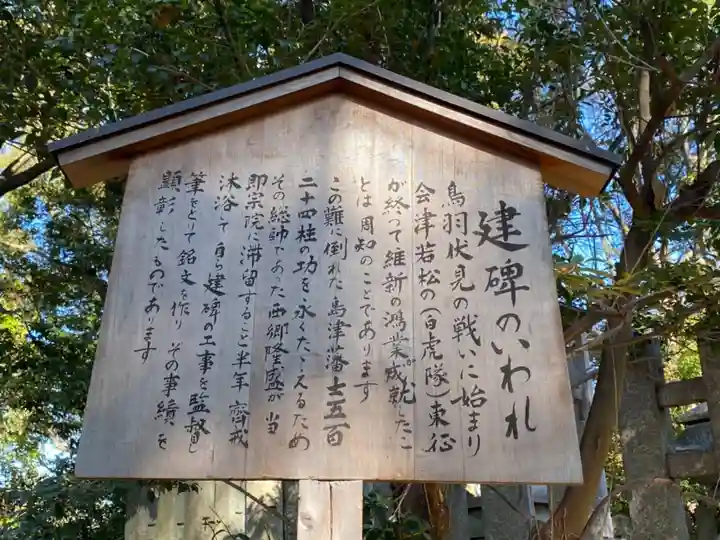 建碑のいわれ
鳥羽伏見の戦いに始まり
会津若松の(白虎隊)東征
が終って維新の鴻業が成就したこ
とは周知のことであります
この難に倒れた島津藩士五百
二十四柱の功を永くたゝえるため
その総帥であった西郷隆盛が当
即宗院に滞留すること半年 斉戒
沐浴して自ら建碑の工事を監督し
筆をとり銘文を作り その事績を
顕彰したものであります